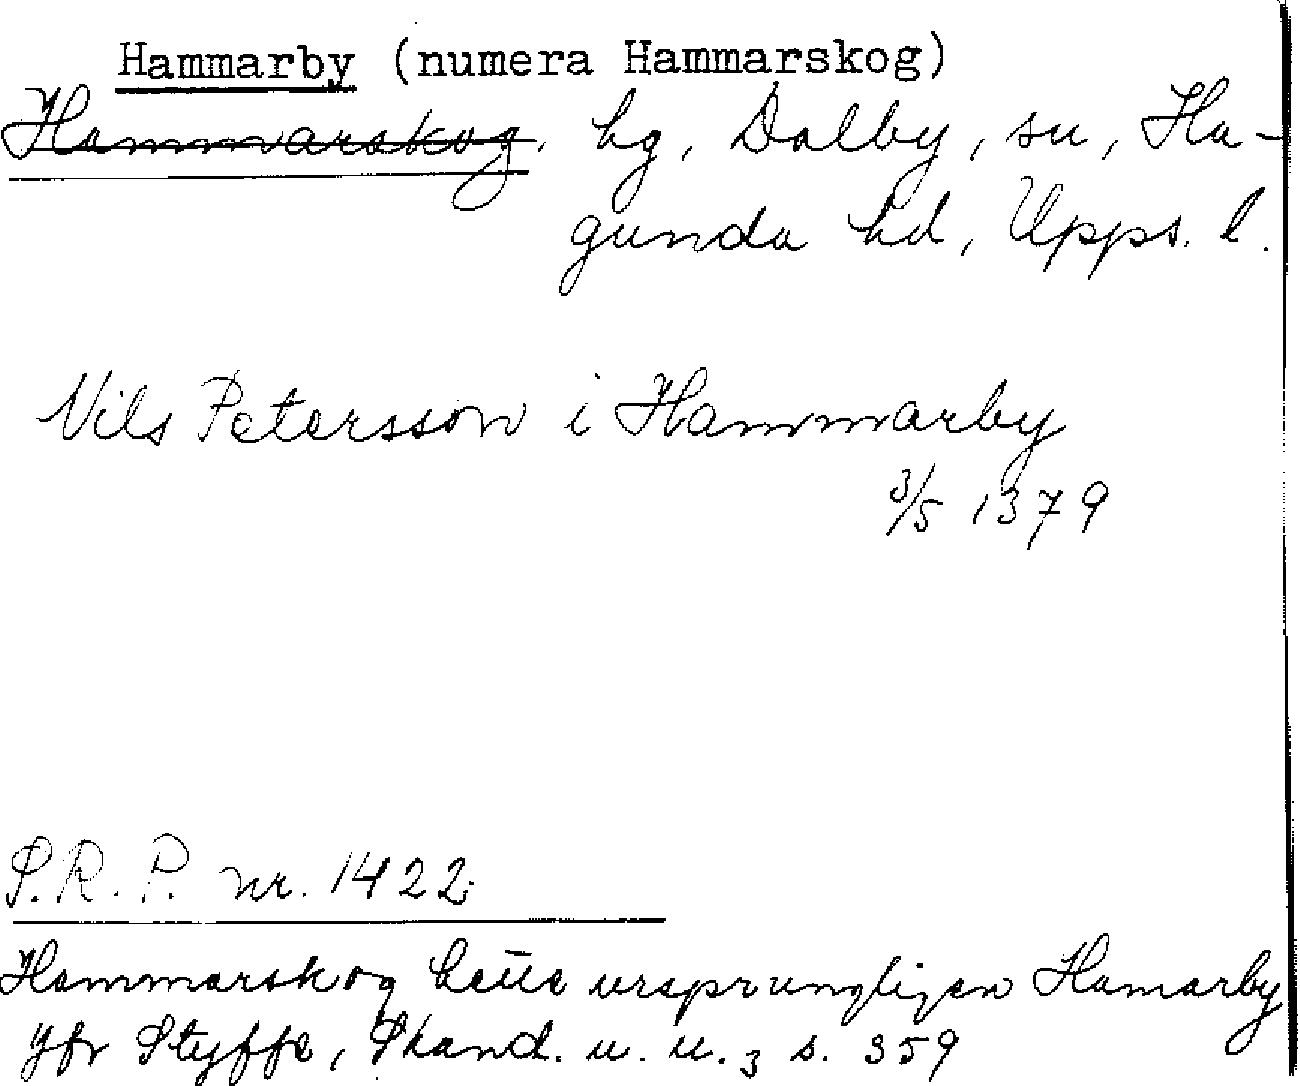 Hammarby (numera Hammarskog)
Hammarskog, hg, Dalby, sn, Ha-
gunda hd, Upps. l.
Nils Petersson i Hammarby
3/5 1379
S.R.P. nr. 1422
Hammarskog hette ursprungligen Hamarby
Jfr Styffe, Skand. u. u. 3 s. 359